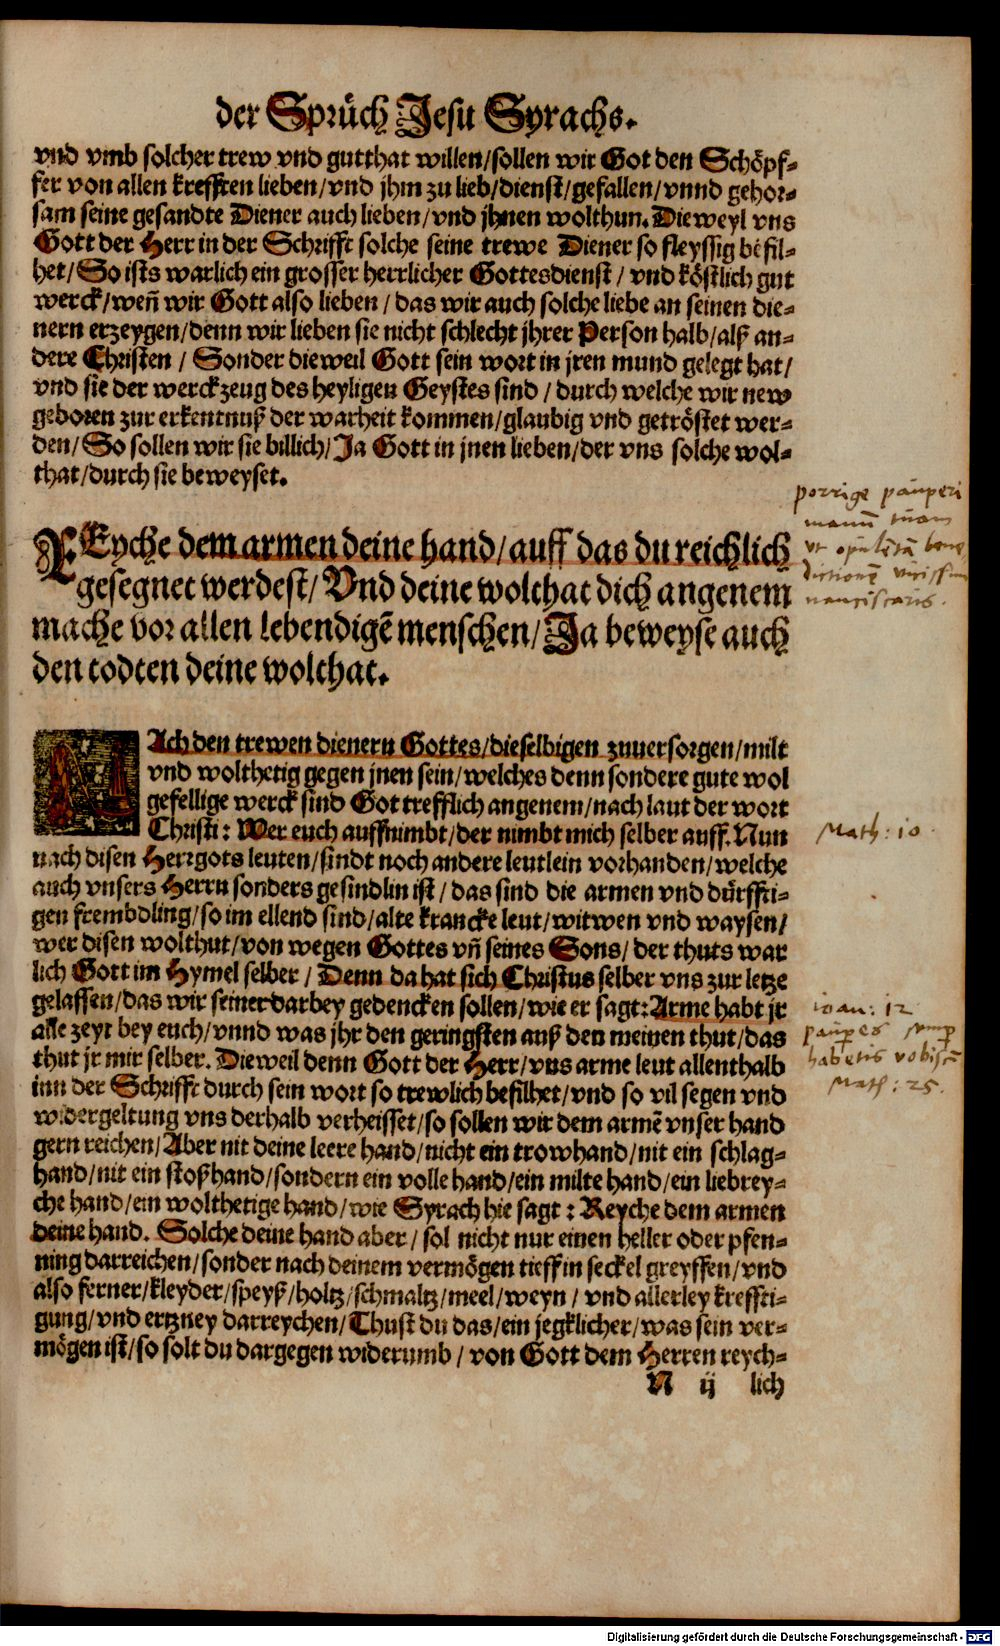 der Sprüch Jesu Syrachs.
vnd vmb solcher trew vnd gutthat willen/sollen wir Got den Schöpf-
fer von allen krefften lieben/vnd jhm zu lieb/dienst/gefallen/vnnd gehor-
sam seine gesandte Diener auch lieben/vnd jhnen wolthun. Dieweyl vns
Gott der Herr in der Schrifft solche seine trewe Diener so fleyssig befil-
het/So ists warlich ein grosser herrlicher Gottesdienst/vnd köstlich gut
werck/weñ wir Gott also lieben/das wir auch solche liebe an seinen die-
nern erzeygen/denn wir lieben sie nicht schlecht jhrer Person halb/alß an-
dere Christen/Sonder dieweil Gott sein wort in jren mund gelegt hat/
vnd sie der werckzeug des heyligen Geystes sind/durch welche wir new
geboren zur erkentnuß der warheit kommen/glaubig vnd getröstet wer-
den/So sollen wir sie billich/Ja Gott in jnen lieben/der vns solche wol-
that/durch sie beweyset.
porrige pauperi
manū tuam
vt opulētā bene
dictionē vicissim
nanciscaris.
REyche dem armen deine hand/auff das du reichlich
gesegnet werdest/Vnd deine wolthat dich angenem
mache vor allen lebendigē menschen/Ja beweyse auch
den todten deine wolthat.
NAch den trewen dienern Gottes/dieselbigen zuuersorgen/milt
vnd wolthetig gegen jnen sein/welches denn sondere gute wol
gefellige werck sind Got trefflich angenem/nach laut der wort
Christi: Wer euch auffnimbt/der nimbt mich selber auff. Nun
Math: 10.
nach disen Herrgots leuten/sindt noch andere leutlein vorhanden/welche
auch vnsers Herrn sonders gesindlin ist/das sind die armen vnd dürffti-
gen frembdling/so im ellend sind/alte krancke leut/witwen vnd waysen/
wer disen wolthut/von wegen Gottes vñ seines Sons/der thuts war
lich Gott im Hymel selber/Denn da hat sich Christus selber vns zur letze
gelassen/das wir seiner darbey gedencken sollen/wie er sagt: Arme habt jr
alle zeyt bey euch/vnnd was jhr den geringsten auß den meinen thut/das
thut jr mir selber. Dieweil denn Gott der Herr/vns arme leut allenthalb
ioan: 12
pauperes semp
habetis vobiscū
Math: 25.
inn der Schrifft durch sein wort so trewlich befilhet/vnd so vil segen vnd
widergeltung vns derhalb verheisset/so sollen wir dem armē vnser hand
gern reichen/Aber nit deine leere hand/nicht ein trowhand/nit ein schlag-
hand/nit ein stoßhand/sondern ein volle hand/ein milte hand/ein liebrey-
che hand/ein wolthetige hand/wie Syrach hie sagt: Reyche dem armen
deine hand. Solche deine hand aber/sol nicht nur einen heller oder pfen-
ning darreichen/sonder nach deinem vermögen tieff in seckel greyffen/vnd
also ferner/kleyder/speyß/holtz/schmaltz/meel/weyn/vnd allerley kreffti-
gung/vnd ertzney darreychen/Thust du das/ein jegklicher/was sein ver-
mögen ist/so solt du dargegen widerumb/von Gott dem Herren reych-
N ij lich
Digitalisierung gefördert durch die Deutsche Forschungsgemeinschaft - DFG